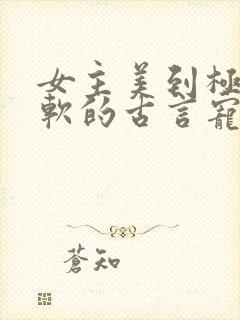 女主美到極
軟的古言寵
蒼知